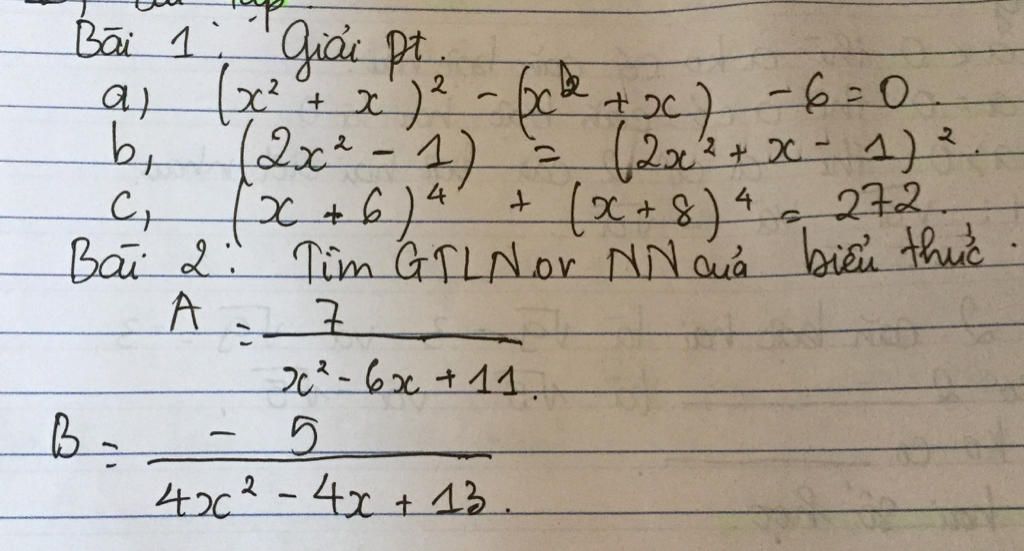 Bài 1: Giải pt.
a, (x² + x)² - (x² + x) - 6 = 0.
b, (2x² - 1) = (2x² + x - 1)².
c, (x + 6)⁴ + (x + 8)⁴ = 272.
Bài 2: Tìm GTLN or NN của biểu thức.
A = 7 / x² - 6x + 11.
B = - 5 / 4x² - 4x + 13.